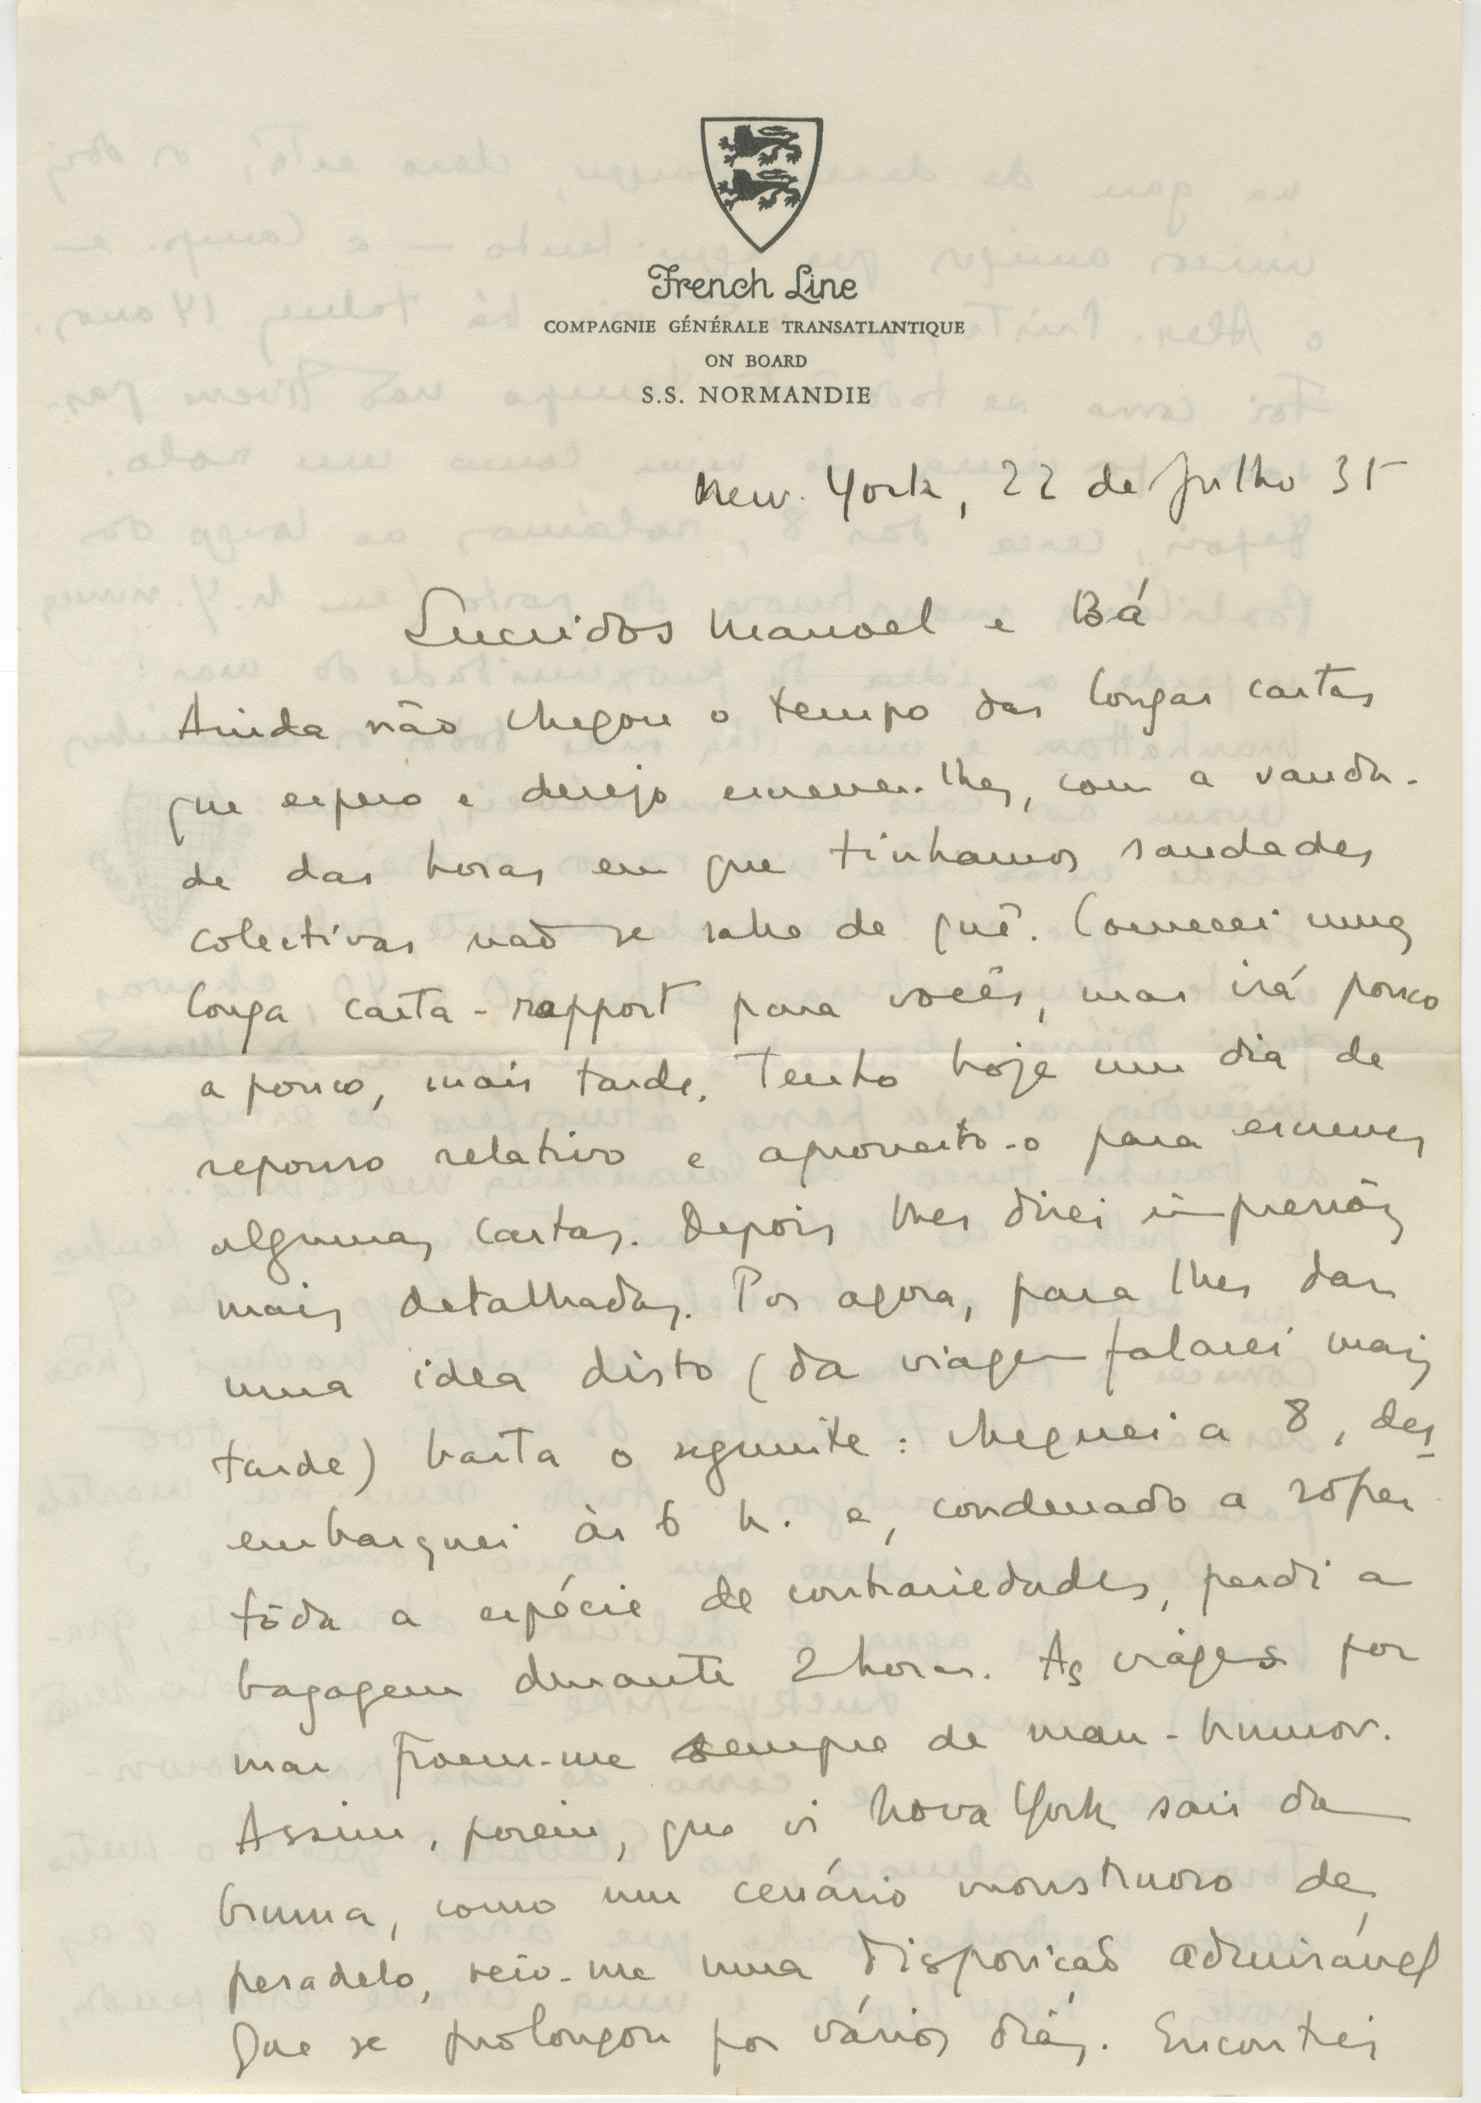 French Line
COMPAGNIE GÉNÉRALE TRANSATLANTIQUE
ON BOARD
S.S. NORMANDIE
New. York, 22 de Julho 35
Queridos Manoel e Bá
Ainda não chegou o tempo das longas cartas
que espero e desejo escrever-lhes, com a vanda-
de das horas em que tinhamos saudades
colectivas não se sabe de quê. Comecei uma
longa carta-rapport para vocês, mas irá pouco
a pouco, mais tarde. Tenho hoje um dia de
repouso relativo e aproveito-o para escrever
algumas cartas. Depois lhes direi impressões
mais detalhadas. Por agora, para lhes dar
uma idea disto (da viagem falarei mais
tarde) basta o seguinte: cheguei a 8, des-
embarquei às 6 h. e, condenado a sofrer
tôda a espécie de contrariedades, perdi a
bagagem durante 2 horas. As viagens por
mar põem-me sempre de mau-humor.
Assim, porém, que vi Nova York sair da
bruma, como um cenário monstruoso de
pesadelo, veio-me uma disposição admirável
que se prolongou por vários dias. Encontrei